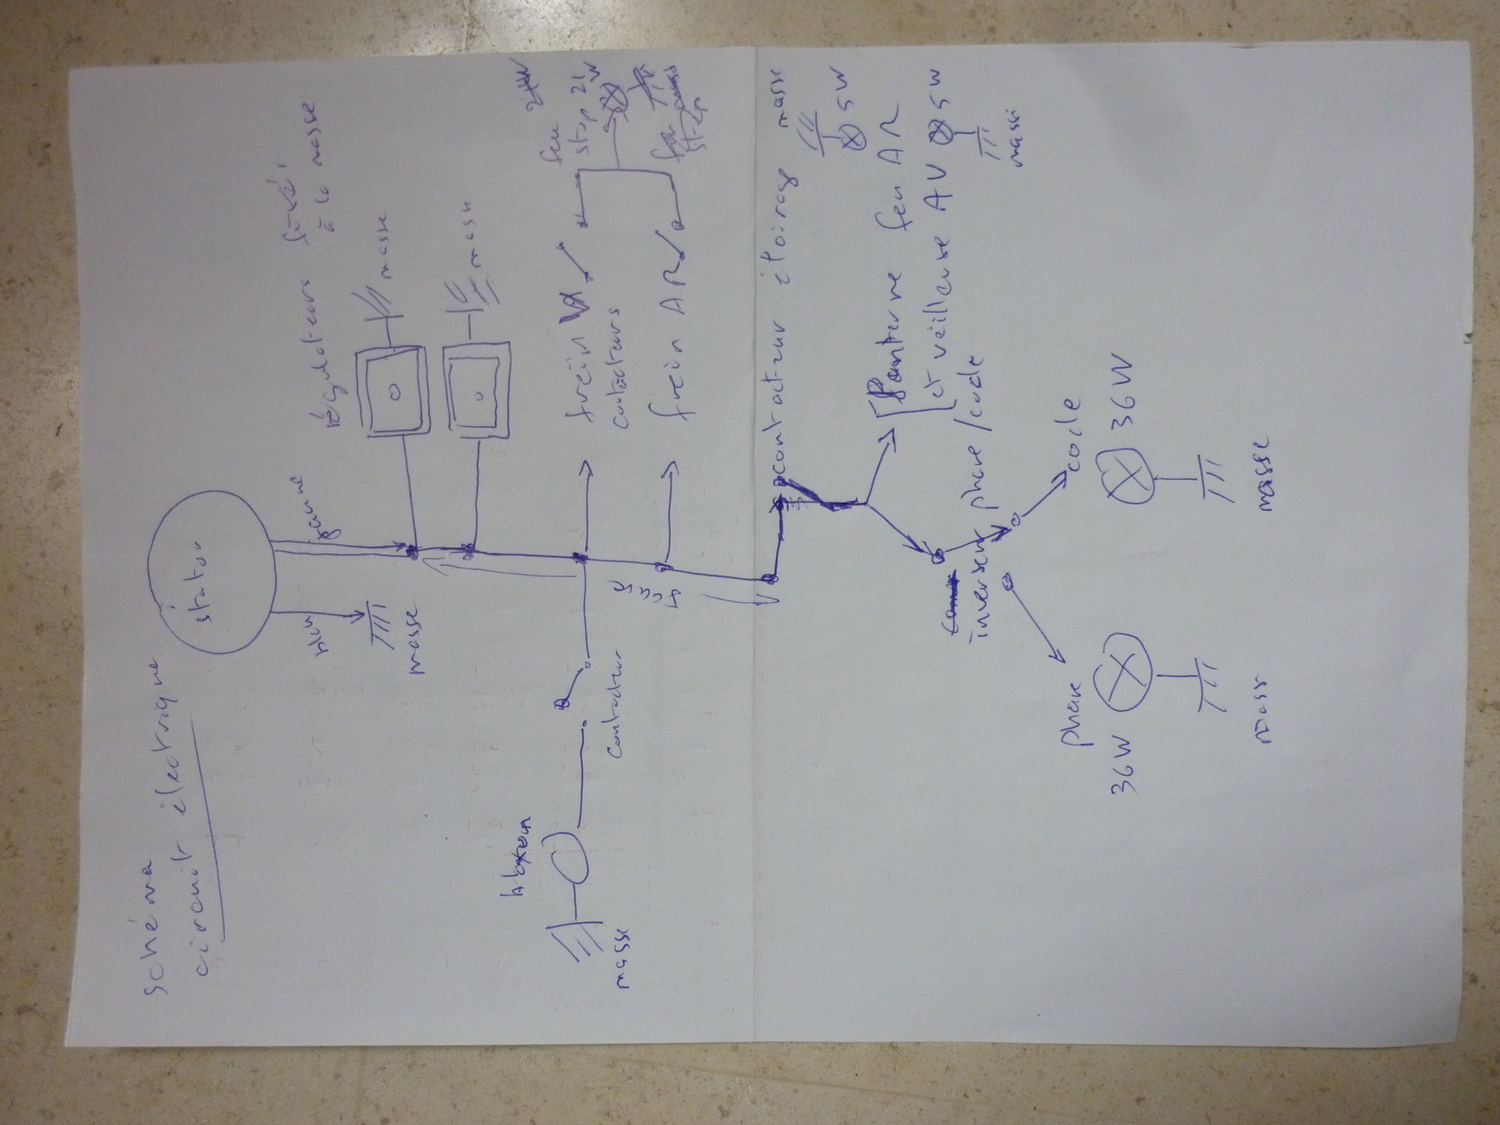 schéma
circuit électrique
stator
bleu
jaune
masse
régulateurs fixés
à la masse
masse
masse
klaxon
masse
contacteur
frein
contacteurs
frein AR
feu
stop 21
W
contacteur
masse
5W
feu AR
et veilleuse AV
5W
inverseur phare/code
phare
36W
code
36W
masse